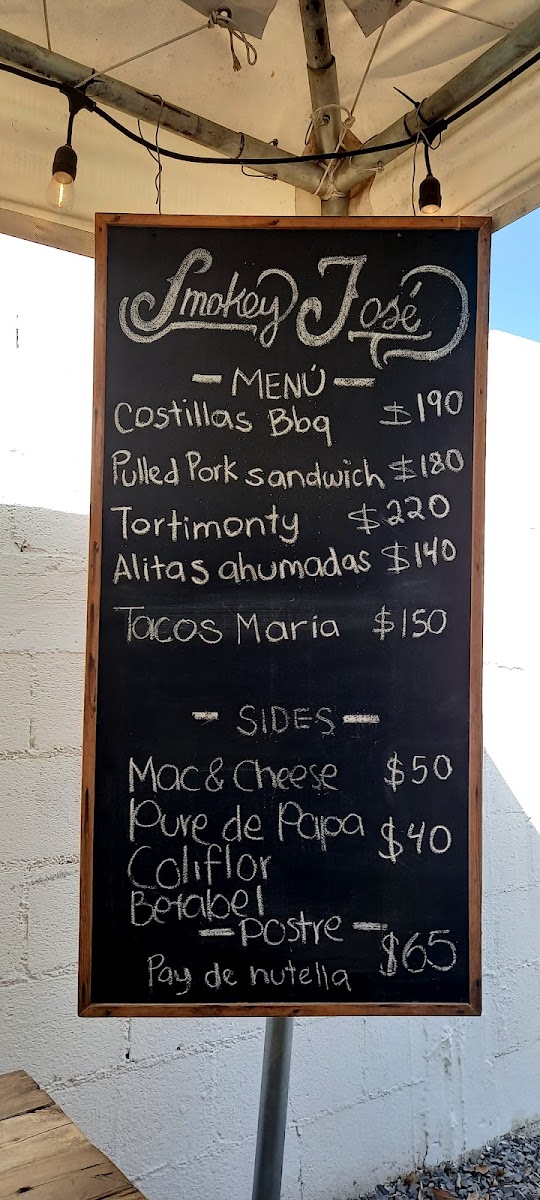 Smokey José
- MENÚ -
Costillas Bbq $190
Pulled Pork sandwich $180
Tortimonty $220
Alitas ahumadas $140
Tacos Maria $150
- SIDES -
Mac & Cheese $50
Pure de Papa $40
Coliflor
Betabel
- Postre -
Pay de nutella $65